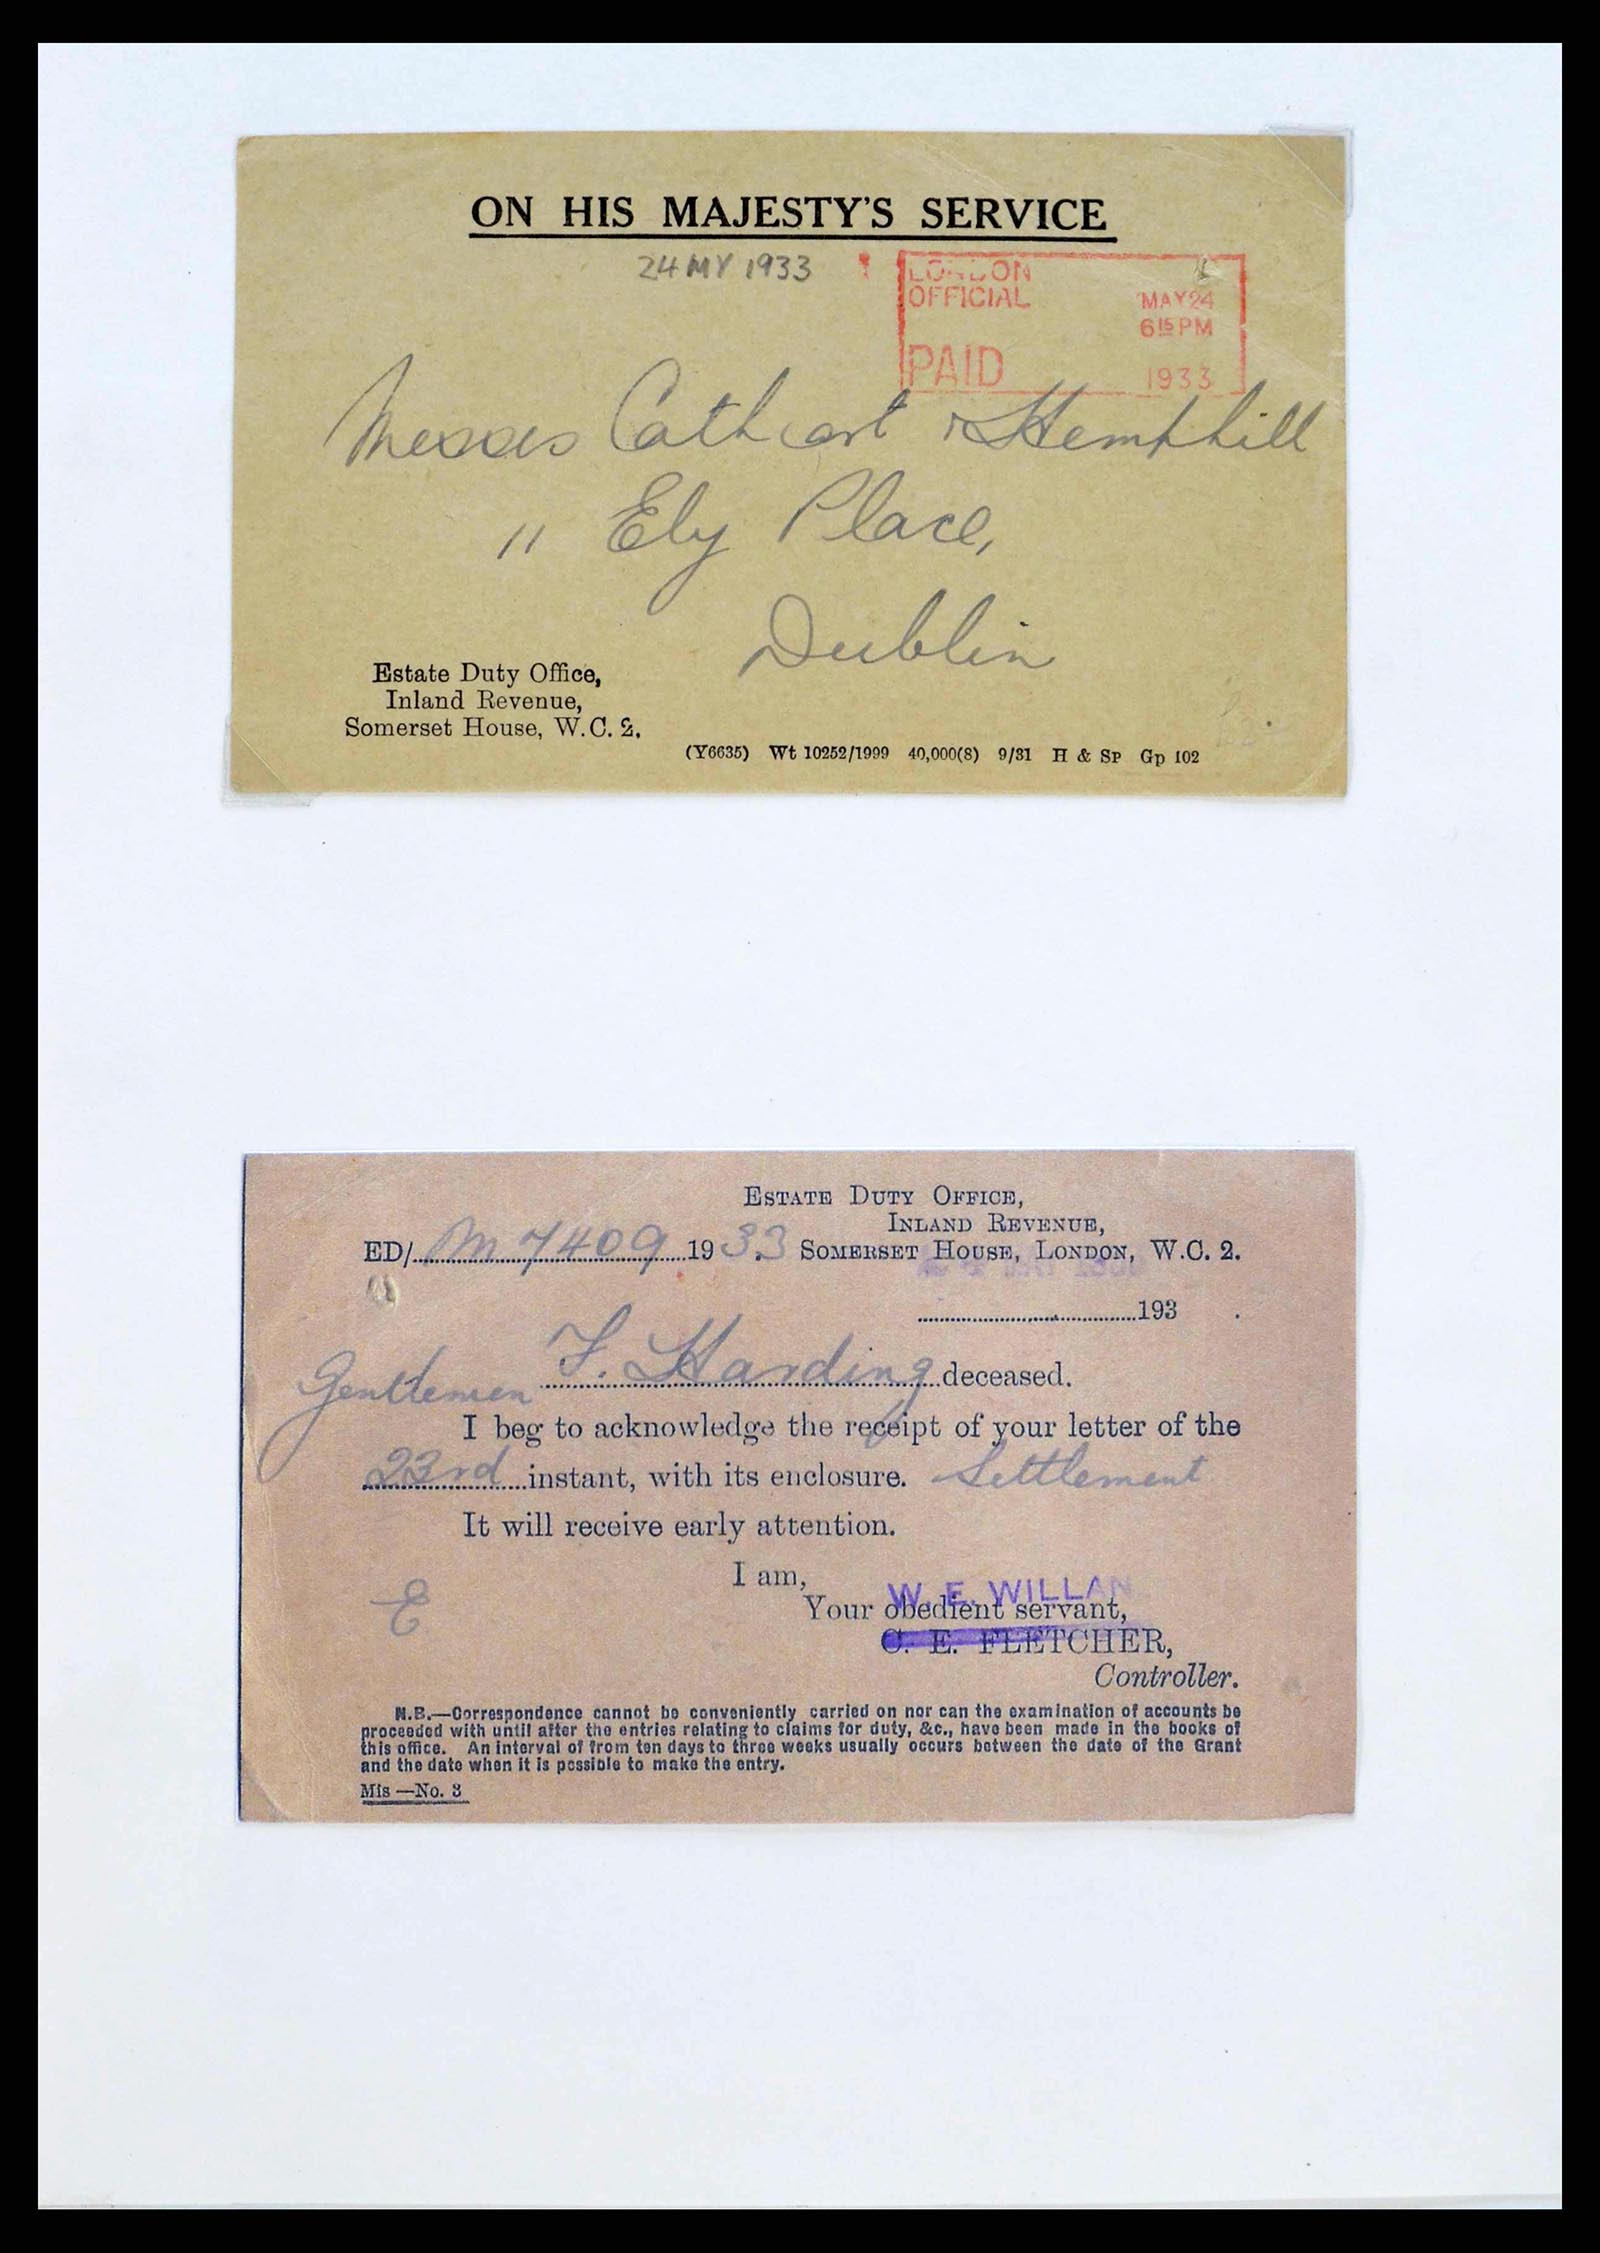 ON HIS MAJESTY'S SERVICE
24 MY 1933
LONDON
OFFICIAL
MAY 24
6 15 PM
PAID
1933
Messrs Cathcart & Hemphill
11 Ely Place,
Dublin
Estate Duty Office,
Inland Revenue,
Somerset House, W.C. 2.
(Y6635) Wt 10252/1999 40,000(8) 9/31 H & Sp Gp 102
Estate Duty Office,
Inland Revenue,
ED/ M 7409 1933. Somerset House, London, W.C. 2.
193 .
Gentlemen F. Harding deceased.
I beg to acknowledge the receipt of your letter of the
23rd instant, with its enclosure. Settlement
It will receive early attention.
I am,
W. E. WILLAN
Your obedient servant,
C. E. FLETCHER,
Controller.
E
N.B.—Correspondence cannot be conveniently carried on nor can the examination of accounts be
proceeded with until after the entries relating to claims for duty, &c., have been made in the books of
this office. An interval of from ten days to three weeks usually occurs between the date of the Grant
and the date when it is possible to make the entry.
Mis —No. 3